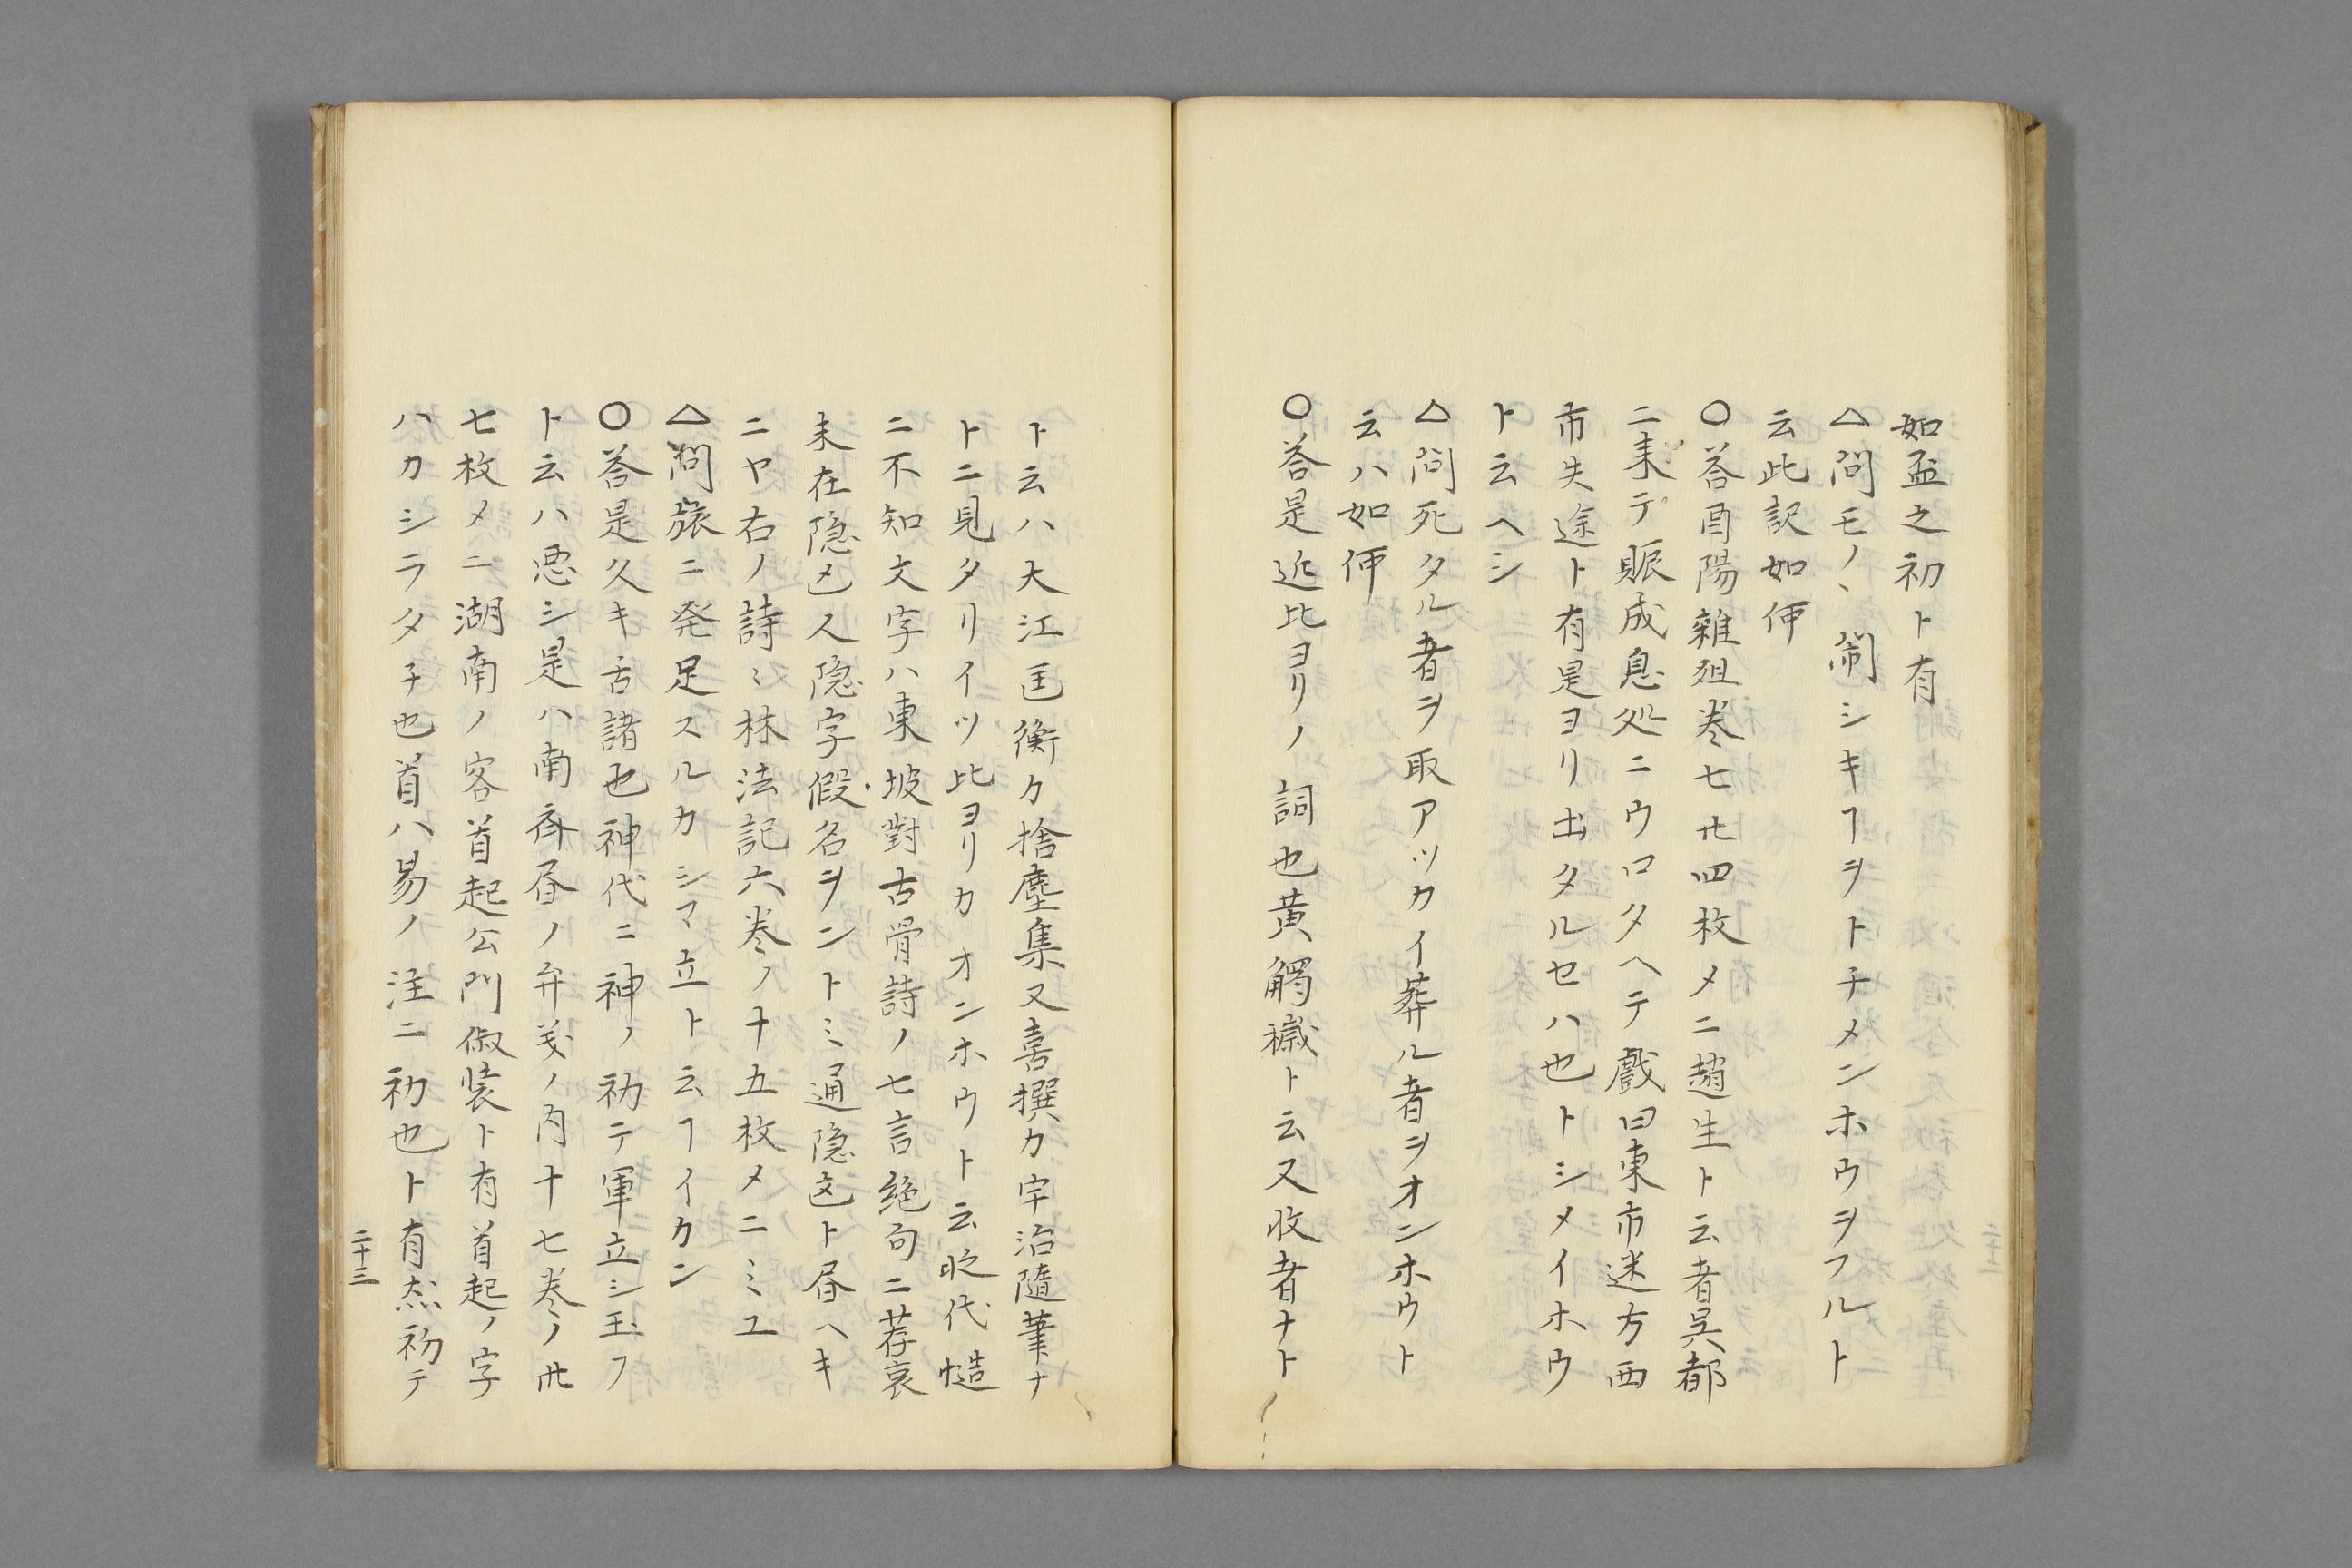 如盃之初ト有
△問モノヽ鬧シキヿヲトチメンホウヲフルト
云此訳如何
○答酉陽雜俎巻七卅四枚メニ趙生ト云者呉都
ニ来テ賑成息処ニウロタヘテ戯曰東市迷方西
市失途ト有是ヨリ出タルセハ也トシメイホウ
ト云ヘシ
△問死タル者ヲ取アツカイ葬ル者ヲオンホウト
云ハ如何
○答是近比ヨリノ詞也黄觸穢ト云又收者ナト
ト云ハ大江匡衡カ捨塵集又喜撰カ宇治隨筆ナ
トニ見タリイツ比ヨリカオンホウト云 代慥
ニ不知文字ハ東坡對古骨詩ノ七言絶句ニ荐哀
未在隠 人隠字假名ヲントミ通隠 ト昼ヘキ
ニヤ右ノ詩ミ林法記六巻ノ十五枚メニミユ
△問旅ニ発足スルカシマ立ト云ヿイカン
○答是久キ古諸也神代ニ神ノ初テ軍立シ玉フ
ト云ハ悪シ是ハ南斉昼ノ弁義ノ内十七巻ノ卅
七枚メニ湖南ノ客首起公門俶装ト有首起ノ字
ハカシラタチ也首ハ易ノ注ニ初也ト有 初テ
二十三